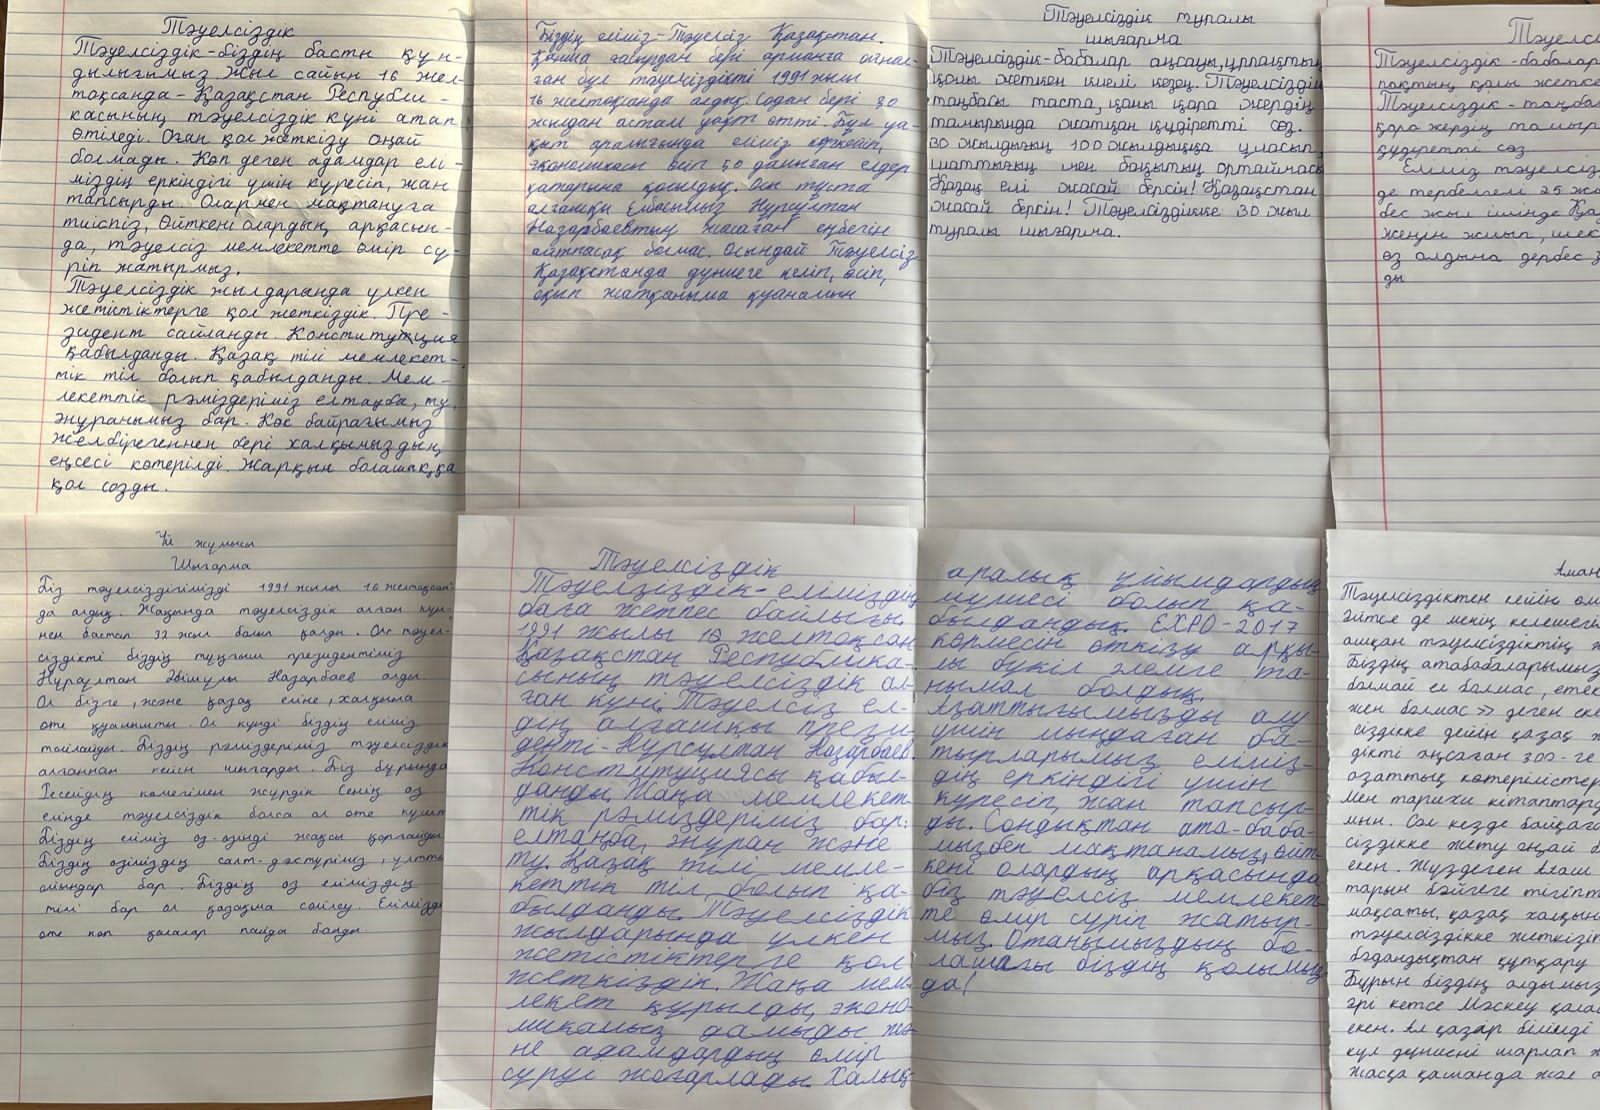 Тәуелсіздік
Тәуелсіздік-біздің басты құн-
дылығымыз Жыл сайын 16 жел-
тоқсанда-Қазақстан Республи-
касының тәуелсіздік күні атап
өтіледі. Оған қол жеткізу оңай
болмады. Көп деген адамдар елі-
міздің еркіндігі үшін күресіп, жан
тапсырды. Олармен мақтануға
тиіспіз, Өйткені олардың арқасын-
да, тәуелсіз мемлекетте өмір сү-
ріп жатырмыз.
Тәуелсіздік жылдарында үлкен
жетістіктерге қол жеткіздік. Пре-
зидент сайланды. Конституция
қабылданды. Қазақ тілі мемлекет-
тік тіл болып қабылданды. Мем-
лекеттіс рәміздеріміз елтаңба, ту,
әнұранымыз бар. Көк байрағымыз
желбірегеннен бері халқымыздың
еңсесі көтерілді. Жарқын болашаққа
қол созды.
Біздің еліміз-Тәуелсіз Қазақстан.
Қанша ғасырдан бері арманға айнал-
ған бұл тәуелсіздікті 1991 жылы
16 желтоқсанда алдық. Содан бері 30
жылдан астам уақыт өтті. Бұл уа-
қыт аралығында еліміз көркейіп,
экономикасы өсіп 50 дамыған елдер
қатарына қосылдық. Осы тұста
алғашқы Елбасымыз Нұрсұлтан
Назарбаевтың жасаған еңбегін
айтпасақ болмас. Осындай Тәуелсіз
Қазақстанда дүниеге келіп, өсіп,
оқып жатқаныма қуанамын
Тәуелсіздік туралы
шығарма
Тәуелсіздік-бабалар аңсауы,ұрпақтың
қолы жеткен киелі кезең. Тәуелсіздік
таңбасы таста, қаны қара жердің
тамырында жатқан құдіретті сөз.
30 жылдығың 100 жылдыққа ұласып,
шаттығың мен бақытың ортаймасы
Қазақ елі жасай берсін! Қазақстан
жасай берсін! Тәуелсіздікке 30 жыл
туралы шығарма.
Тәуелсі
Тәуелсіздік-бабалар
пақтың қолы жетке
Тәуелсіздік-таңба
қара жердің тамыр
құдіретті сөз
Еліміз тәуелсіз
де тербелгелі 25 жы
бес жыл ішінде Қаз
жеңін жиып, шек
өз алдына дербес
ды
Үй жұмысы
Шығарма
Біз тәуелсіздігімізді 1991 жылы 16 желтоқсан-
да алдық. Жақында тәуелсіздік алған күн-
нен бастап 32 жыл болып қалды. Осы тәуел-
сіздікті біздің тұңғыш президентіміз
Нұрсұлтан Әбішұлы Назарбаев алды.
Ол бізге, және қазақ еліне, халқына
өте қуанышты. Ол күнді біздің еліміз
тойлайды. Біздің рәміздеріміз тәуелсіздік
алғаннан кейін шығарды. Біз бұрында
Ресейдің көмегімен жүрдік Сенің өз
елінде тәуелсіздік болса ол өте күшті
Біздің еліміз өз-өзінді жақсы қорғайды
Біздің өзіміздің салт-дәстүріміз, ұлттық
ойындар бар. Біздің өз еліміздің
тілі бар ол қазақша сөйлеу. Еліміздe
өте көп қалалар пайда болды.
Тәуелсіздік
Тәуелзіздік-еліміздің
баға жетпес байлығы.
1991 жылы 16 желтоқсан
Қазақстан Республика-
сының тәуелсіздік ал-
ған күні. Тәуелсіз ел-
дің алғашқы прези-
денті-Нұрсұлтан Назарбаев.
Конституциясы қабыл-
данды. Жаңа мемлекет-
тік рәміздеріміз бар:
елтаңба, әнұран және
ту. Қазақ тілі мемле-
кеттік тіл болып қа-
былданды. Тәуелсіздік
жылдарында үлкен
жетістіктерге қол
жеткіздік. Жаңа мем-
лекет құрылды, эконо-
микамыз дамыды жә-
не адамдардың өмір
сүруі жоғарлады. Халық-
аралық ұйымдардың
мүшесі болып қа-
былдандық. EXPO-2017
көрмесін өткізу арқы-
лы бүкіл әлемге та-
нымал болдық.
Азаттығымызды алу
үшін мыңдаған ба-
тырларымыз еліміз-
дің еркіндігі үшін
күресіп, жан тапсыр-
ды. Сондықтан ата-баба-
мызбен мақтанамыз, өйт-
кені олардың арқасында
біз тәуелсіз мемлекет-
те өмір сүріп жатыр-
мыз. Отанымыздың бо-
лашағы біздің қолымыз-
да!
Аман
Тәуелсіздіктен кейін өм
Әйтсе де менің келешегім
ашқан тәуелсіздіктің
Біздің атабабаларымыз
болмай ел болмас, етек
жең болмас>> деген екен
сіздікке дейін қазақ
дікті аңсаған 300-ге
азаттық көтерілістер
мен тарихи кітаптард
мын. Сол кезде байқаға
сіздікке жету оңай б
екен. Жүздеген Алаш
тарын бәйгеге тігіпт
мақсаты, қазақ халқын
тәуелсіздікке жеткізіп
бодандықтан құтқару
Бұрын біздің алдымыз
әрі кетсе Мәскеу қалас
екен. Ал қазір білімді
күл дүниені шарлап
жасқа қашанда жәе